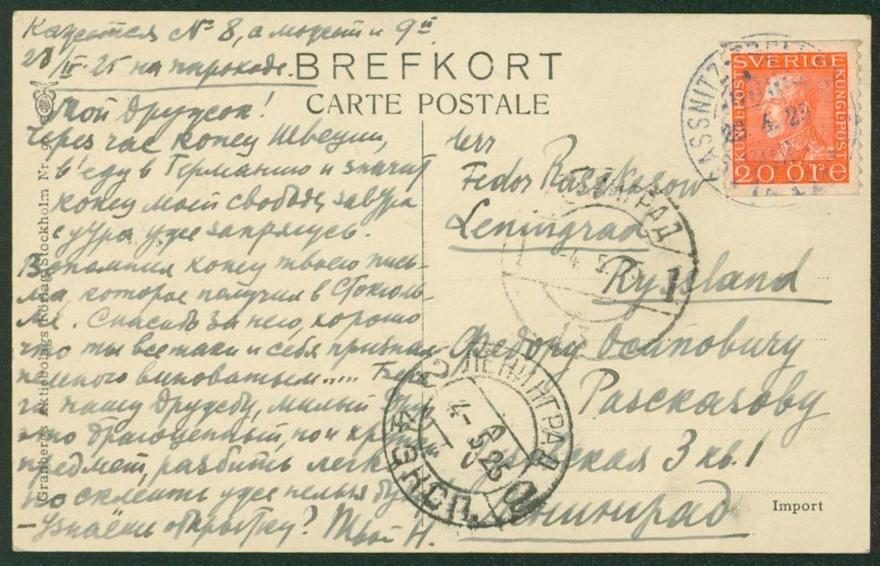 Кажется № 8, а может и 9й
28/IV-25 на пароходе.
BREFKORT
CARTE POSTALE
Мой дружок!
Через час конец Швеции,
въеду в Германию и значит
конец моей свободе, завтра
с утра уже запрягусь.
Вспомнил конец твоего пись-
ма, которое получил в Стокголь-
ме. Спасибо за него, хорошо
что ты всетаки и себя признал
немного виноватым..... Бере-
ги нашу дружбу, милый
это драгоценный, но и хрупкий
предмет, разбить легко
но склеить уже нельзя будет
- Узнаёшь открытку? Твой Н.
Herr
Fedor Rasskasow
Leningrad
Ryssland
Федору Осиповичу
Рассказову
3 кв. 1
Ленинград
SVERIGE
KUNGL. POST
KUNGL. POST
20 ÖRE
SASSNITZ
ЛЕНИНГРАД
1
ЛЕНИНГРАД
4-5
25
ЭКСП.
Granbergs Aktiebolags Förlag, Stockholm Nr.
Import